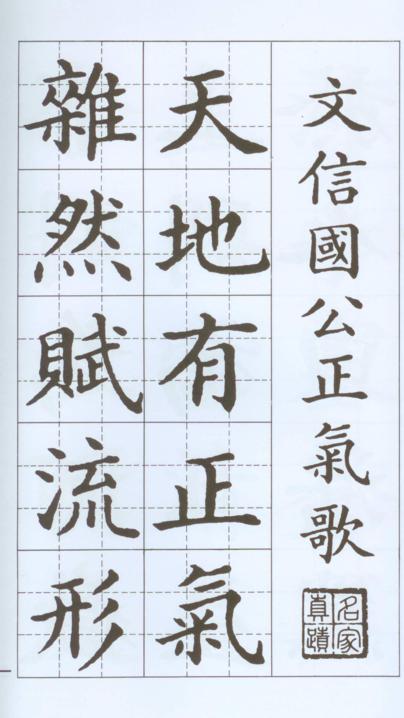 文信國公正氣歌
名家真蹟
天地有正氣
雜然賦流形